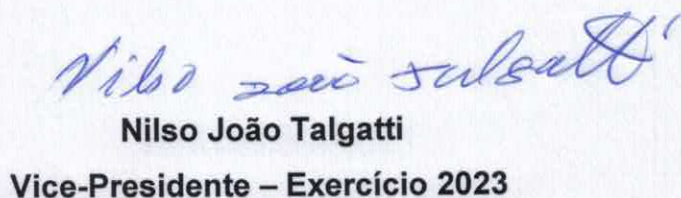 Nilso João Talgatti
Nilso João Talgatti
Vice-Presidente – Exercício 2023